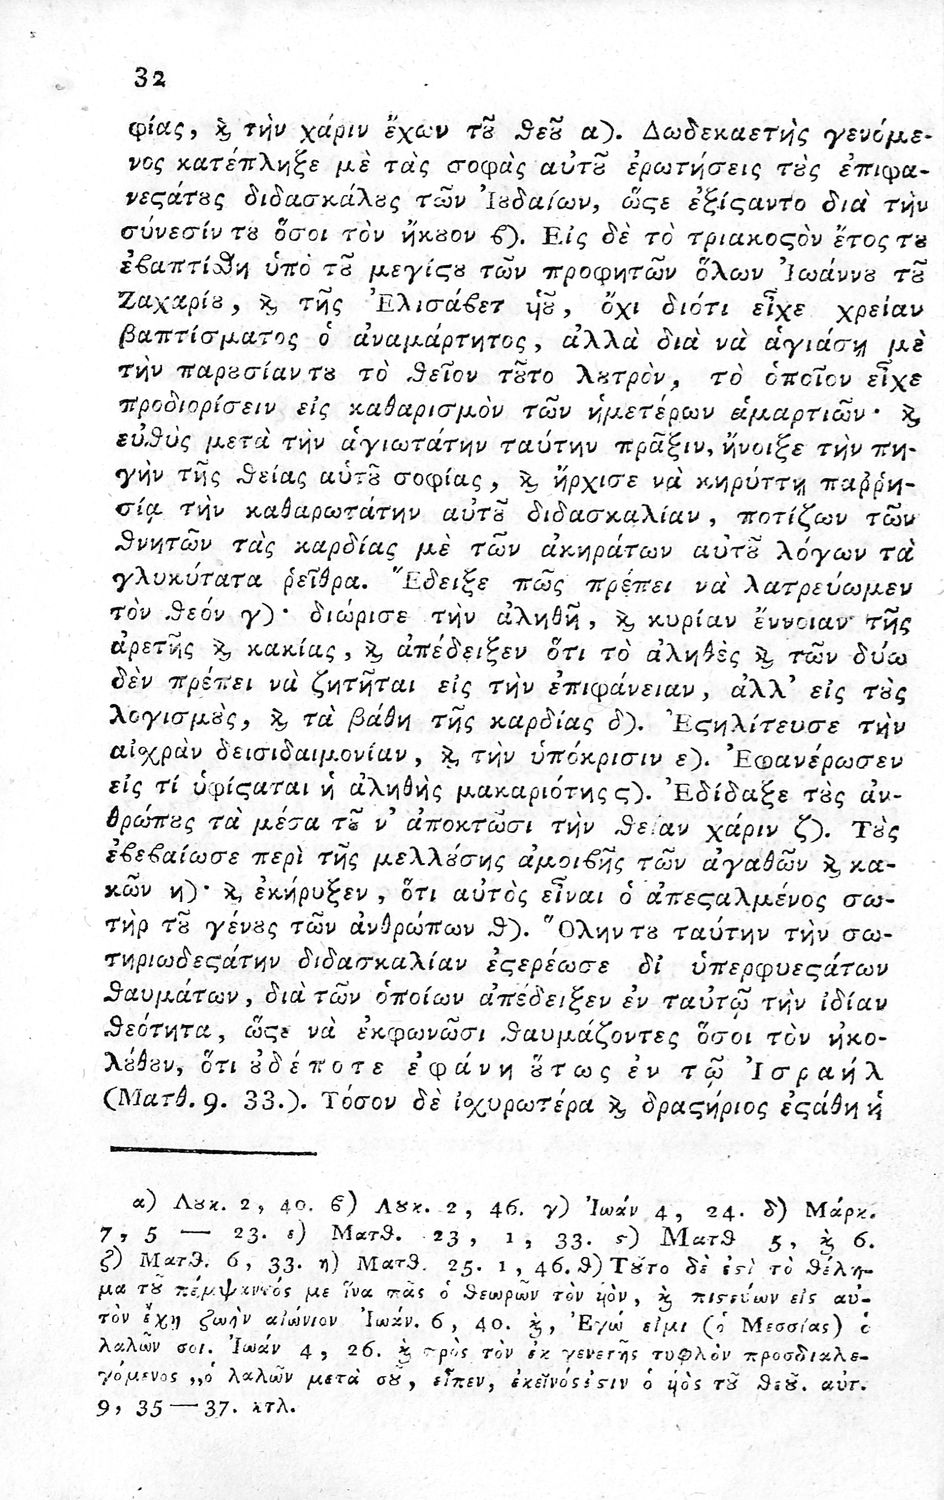 32
φίας, ϗ τὴν χάριν ἔχων τȣ͂ ϑεȣ͂ α). Δωδεκαετὴς γενόμε-
νος κατέπληξε μὲ τὰς σοφὰς αὐτȣ͂ ἐρωτήσεις τȣ̀ς ἐπιφα-
νεϛάτȣς διδασκάλȣς τῶν Ἰȣδαίων, ὥϛε ἐξίϛαντο διὰ τὴν
σύνεσίν τȣ ὅσοι τὸν ἤκȣον ϐ). Εἰς δὲ τὸ τριακοϛὸν ἔτος τȣ
ἐϐαπτίϑη ὑπὸ τȣ͂ μεγίϛȣ τῶν προφητῶν ὅλων Ἰωάννȣ τȣ͂
Ζαχαρίȣ, ϗ τῆς Ἐλισάϐετ ὑȣ͂, ὄχι διότι εἶχε χρείαν
βαπτίσματος ὁ ἀναμάρτητος, ἀλλὰ διὰ νὰ ἁγιάσῃ μὲ
τὴν παρȣσίαν τȣ τὸ ϑεῖον τȣ͂το λȣτρὸν, τὸ ὁποῖον εἶχε
προδιορίσειν εἰς καθαρισμὸν τῶν ἡμετέρων ἁμαρτιῶν· ϗ
εὐϑὺς μετὰ τὴν ἁγιωτάτην ταύτην πρᾶξιν, ἤνοιξε τὴν πη-
γὴν τῆς ϑείας αὑτȣ͂ σοφίας, ϗ ἤρχισε νὰ κηρύττῃ παῤῥη-
σίᾳ τὴν καθαρωτάτην αὐτȣ͂ διδασκαλίαν, ποτίζων τῶν
ϑνητῶν τὰς καρδίας μὲ τῶν ἀκηράτων αὐτȣ͂ λόγων τὰ
γλυκύτατα ῥεῖθρα. Ἔδειξε πῶς πρέπει νὰ λατρεύωμεν
τὸν ϑεόν γ)· διώρισε τὴν ἀληθῆ, ϗ κυρίαν ἔννοιαν τῆς
ἀρετῆς ϗ κακίας, ϗ ἀπέδειξεν ὅτι τὸ ἀληθὲς ϗ τῶν δύω
δὲν πρέπει νὰ ζητῆται εἰς τὴν ἐπιφάνειαν, ἀλλ' εἰς τȣ̀ς
λογισμȣ̀ς, ϗ τὰ βάθη τῆς καρδίας δ). Ἐϛηλίτευσε τὴν
αἰσχρὰν δεισιδαιμονίαν, ϗ τὴν ὑπόκρισιν ε). Ἐφανέρωσεν
εἰς τί ὑφίϛαται ἡ ἀληθὴς μακαριότης ϛ). Ἐδίδαξε τȣ̀ς ἀν-
θρώπȣς τὰ μέσα τȣ͂ ν' ἀποκτῶσι τὴν ϑείαν χάριν ζ). Τȣ̀ς
ἐϐεϐαίωσε περὶ τῆς μελλȣ́σης ἀμοιϐῆς τῶν ἀγαθῶν ϗ κα-
κῶν η)· ϗ ἐκήρυξεν, ὅτι αὐτὸς εἶναι ὁ ἀπεϛαλμένος σω-
τὴρ τȣ͂ γένȣς τῶν ἀνθρώπων ϑ). Ὅλην τȣ ταύτην τὴν σω-
τηριωδεϛάτην διδασκαλίαν ἐϛερέωσε δι' ὑπερφυεϛάτων
ϑαυμάτων, διὰ τῶν ὁποίων ἀπέδειξεν ἐν ταὐτῷ τὴν ἰδίαν
ϑεότητα, ὥϛε νὰ ἐκφωνῶσι ϑαυμάζοντες ὅσοι τὸν ἠκο-
λȣ́θȣν, ὅτι ȣ̓δέποτε ἐφάνη ȣ̔́τως ἐν τῷ Ἰσραήλ
(Ματθ. 9. 33.). Τόσον δὲ ἰσχυρωτέρα ϗ δραϛήριος ἐϛάθη ἡ
α) Λȣκ. 2, 40. ϐ) Λȣκ. 2, 46. γ) Ἰωάν 4, 24. δ) Μάρκ.
7, 5 — 23. ε) Ματϑ. 23, 1, 33. ϛ) Ματϑ 5, ϗ 6.
ζ) Ματϑ. 6, 33. η) Ματϑ. 25. 1, 46. ϑ) Τȣ͂το δὲ ἐϛὶ τὸ ϑέλη-
μα τȣ͂ πέμψαντός με ἵνα πᾶς ὁ ϑεωρῶν τὸν ὑὸν, ϗ πιϛεύων εἰς αὐ-
τὸν ἔχῃ ζωὴν αἰώνιον Ἰωάν. 6, 40. ϗ, Ἐγώ εἰμι (ὁ Μεσσίας) ὁ
λαλῶν σοι. Ἰωάν 4, 26. ϗ πρὸς τὸν ἐκ γενετῆς τυφλὸν προσδιαλε-
γόμενος „ὁ λαλῶν μετὰ σȣ͂, εἶπεν, ἐκεῖνός ἐϛιν ὁ ὑὸς τȣ͂ ϑεȣ͂. αὐτ.
9, 35 — 37. κτλ.